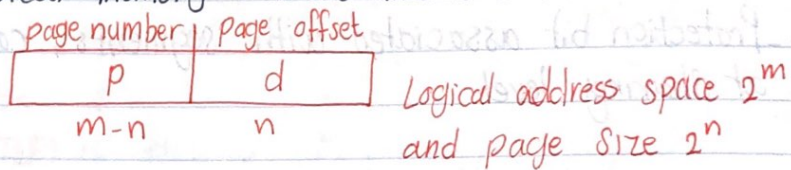 page number page offset
p d
m-n n
Logical address space 2^m
and page size 2^n